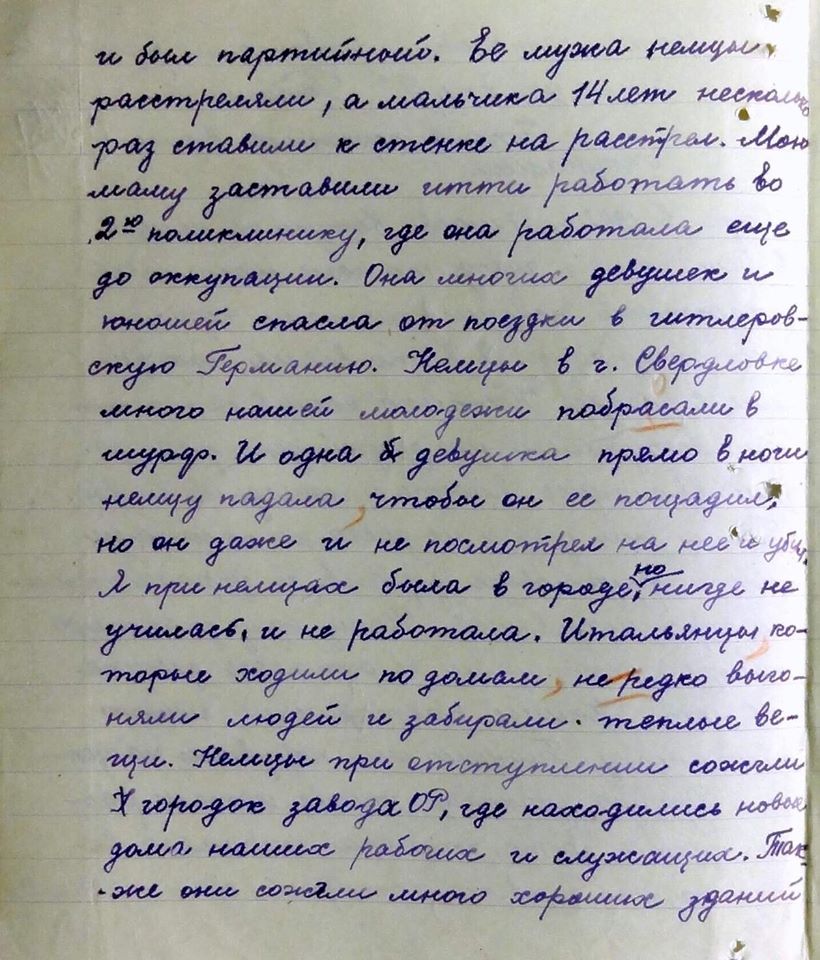 и был партийный. Ее мужа немцы
расстреляли, а мальчика 14 лет несколько
раз ставили к стенке на расстрел. Мою
маму заставили итти работать во
2ую поликлинику, где она работала еще
до оккупации. Она многих девушек и
юношей спасла от поездки в гитлеров-
скую Германию. Немцы в г. Свердловке
много нашей молодежи побрасали в
шурф. И одна девушка прямо в ноги
немцу падала, чтобы он ее пощадил,
но он даже и не посмотрел на нее и убил.
Я при немцах была в городе, но нигде не
училась, и не работала. Итальянцы, ко-
торые ходили по домам, не редко выго-
няли людей и забирали теплые ве-
щи. Немцы при отступлении сожгли
X городок завода ОР, где находились новые
дома наших рабочих и служащих. Так-
же они сожгли много хороших зданий